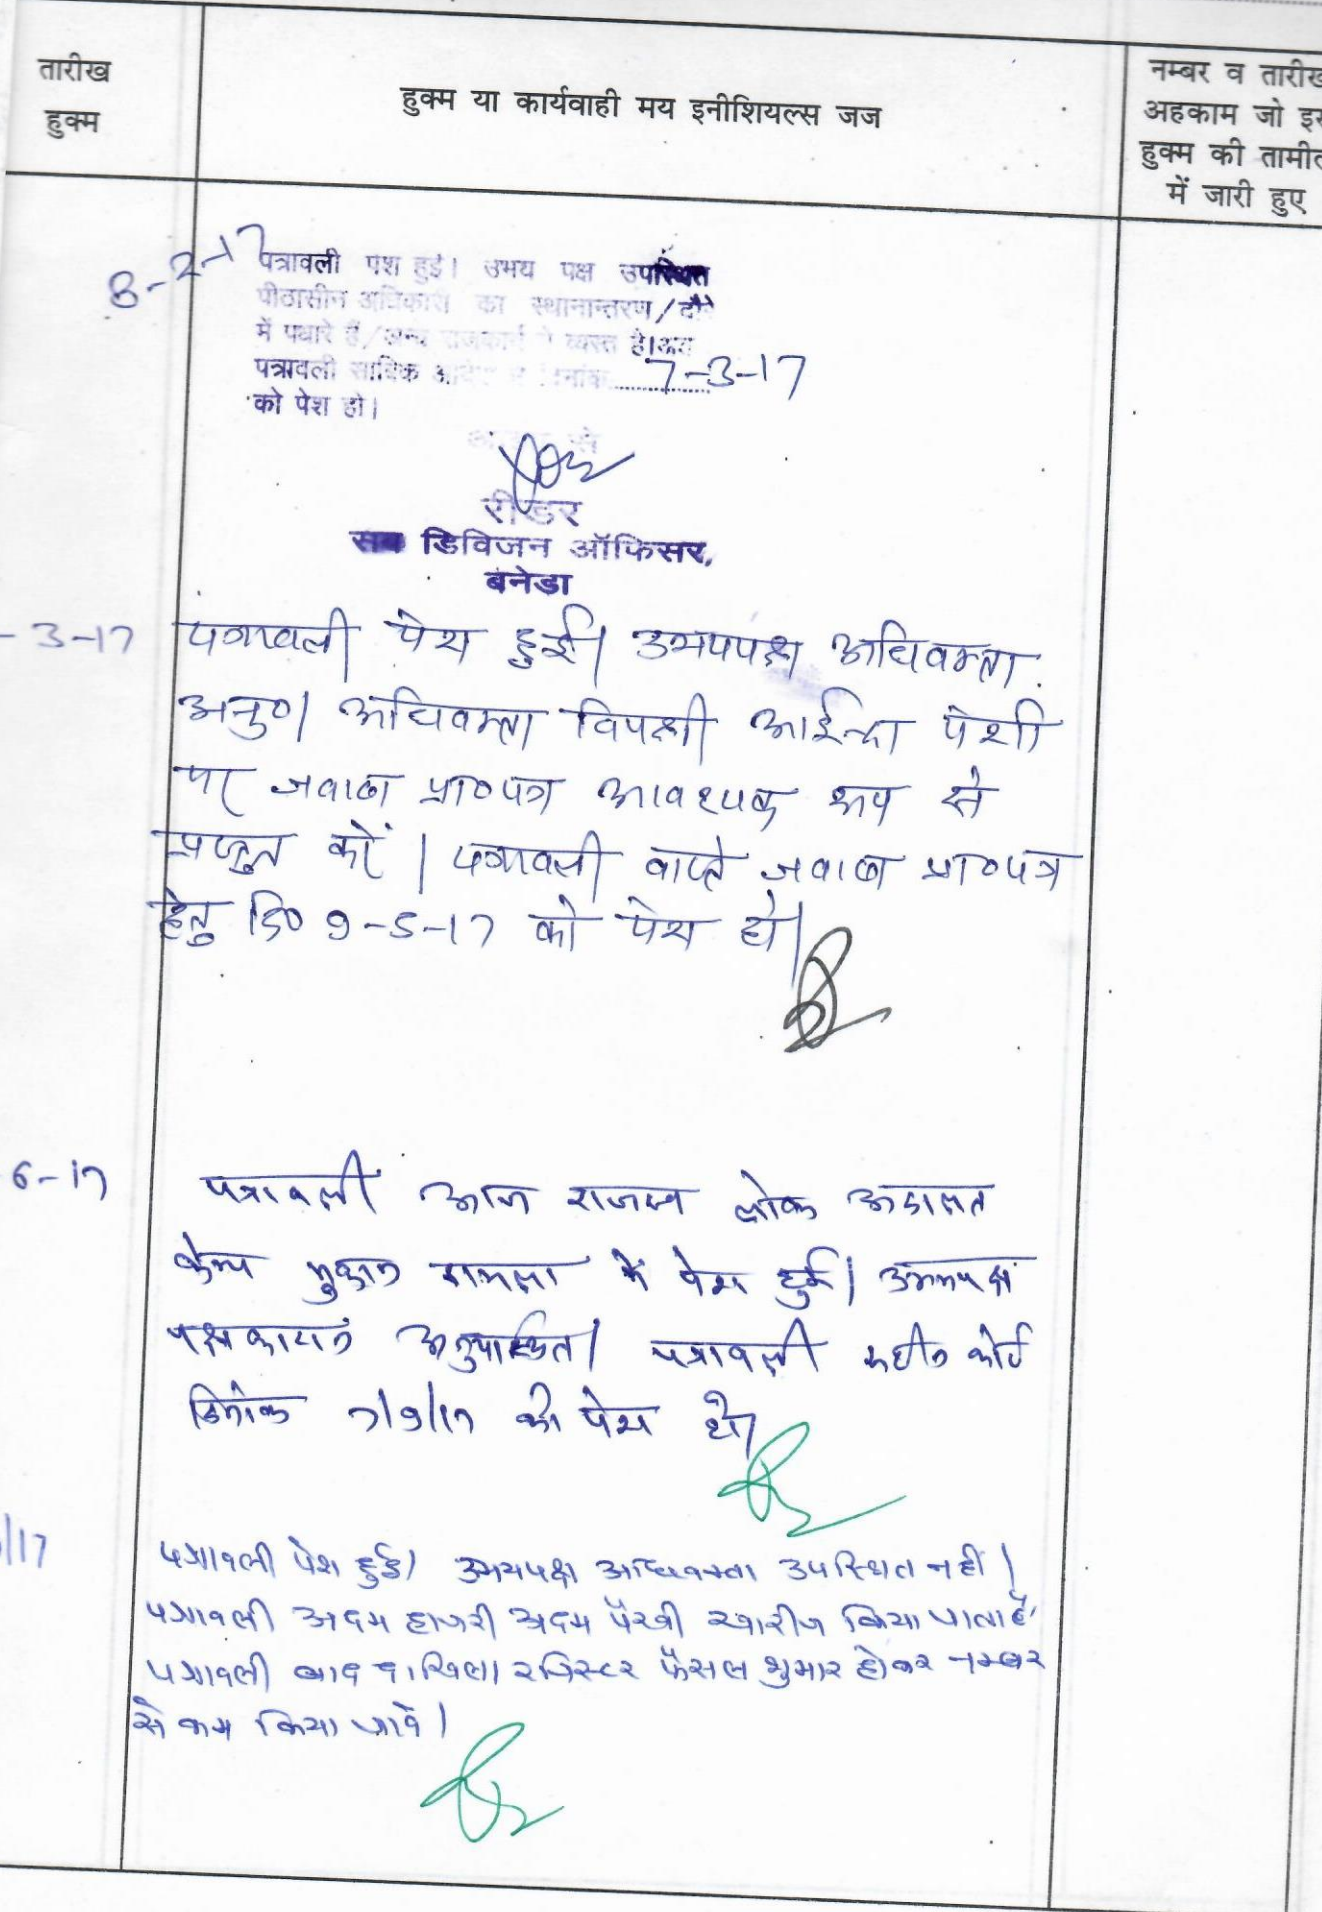 तारीख
हुक्म
हुक्म या कार्यवाही मय इनीशियल्स जज
नम्बर व तारीख
अहकाम जो इस
हुक्म की तामील
में जारी हुए
8-2-17
पत्रावली पेश हुई। उभय पक्ष उपस्थित
पीठासीन अधिकारी का स्थानान्तरण/दौरे
में पधारे हैं/अन्य राजकार्य में व्यस्त है।अतः
पत्रावली साबिक आदेश में दिनांक 7-3-17
को पेश हो।
रीडर
सब डिविजन ऑफिसर,
बनेडा
-3-17 पत्रावली पेश हुई। उभयपक्ष अधिवक्ता
अनु०। अधिवक्ता विपक्षी आईन्दा पेशी
पर जवाब प्रा०पत्र आवश्यक रूप से
प्रस्तुत करें। पत्रावली वास्ते जवाब प्रा०पत्र
हेतु दि० 9-5-17 को पेश हो।
6-17 पत्रावली आज राजस्व लोक अदालत
केम्प मुकाम में पेश हुई। उभयपक्ष
पक्षकारान अनुपस्थित। पत्रावली कोर्ट
दिनांक 7/9/17 को पेश हो।
/17 पत्रावली पेश हुई। उभयपक्ष अधिवक्ता उपस्थित नहीं।
पत्रावली अदम हाजरी अदम पैरवी खारीज किया जाता है
पत्रावली बाद दाखिला रजिस्टर फैसल शुमार होकर नम्बर
से कम किया जावे।